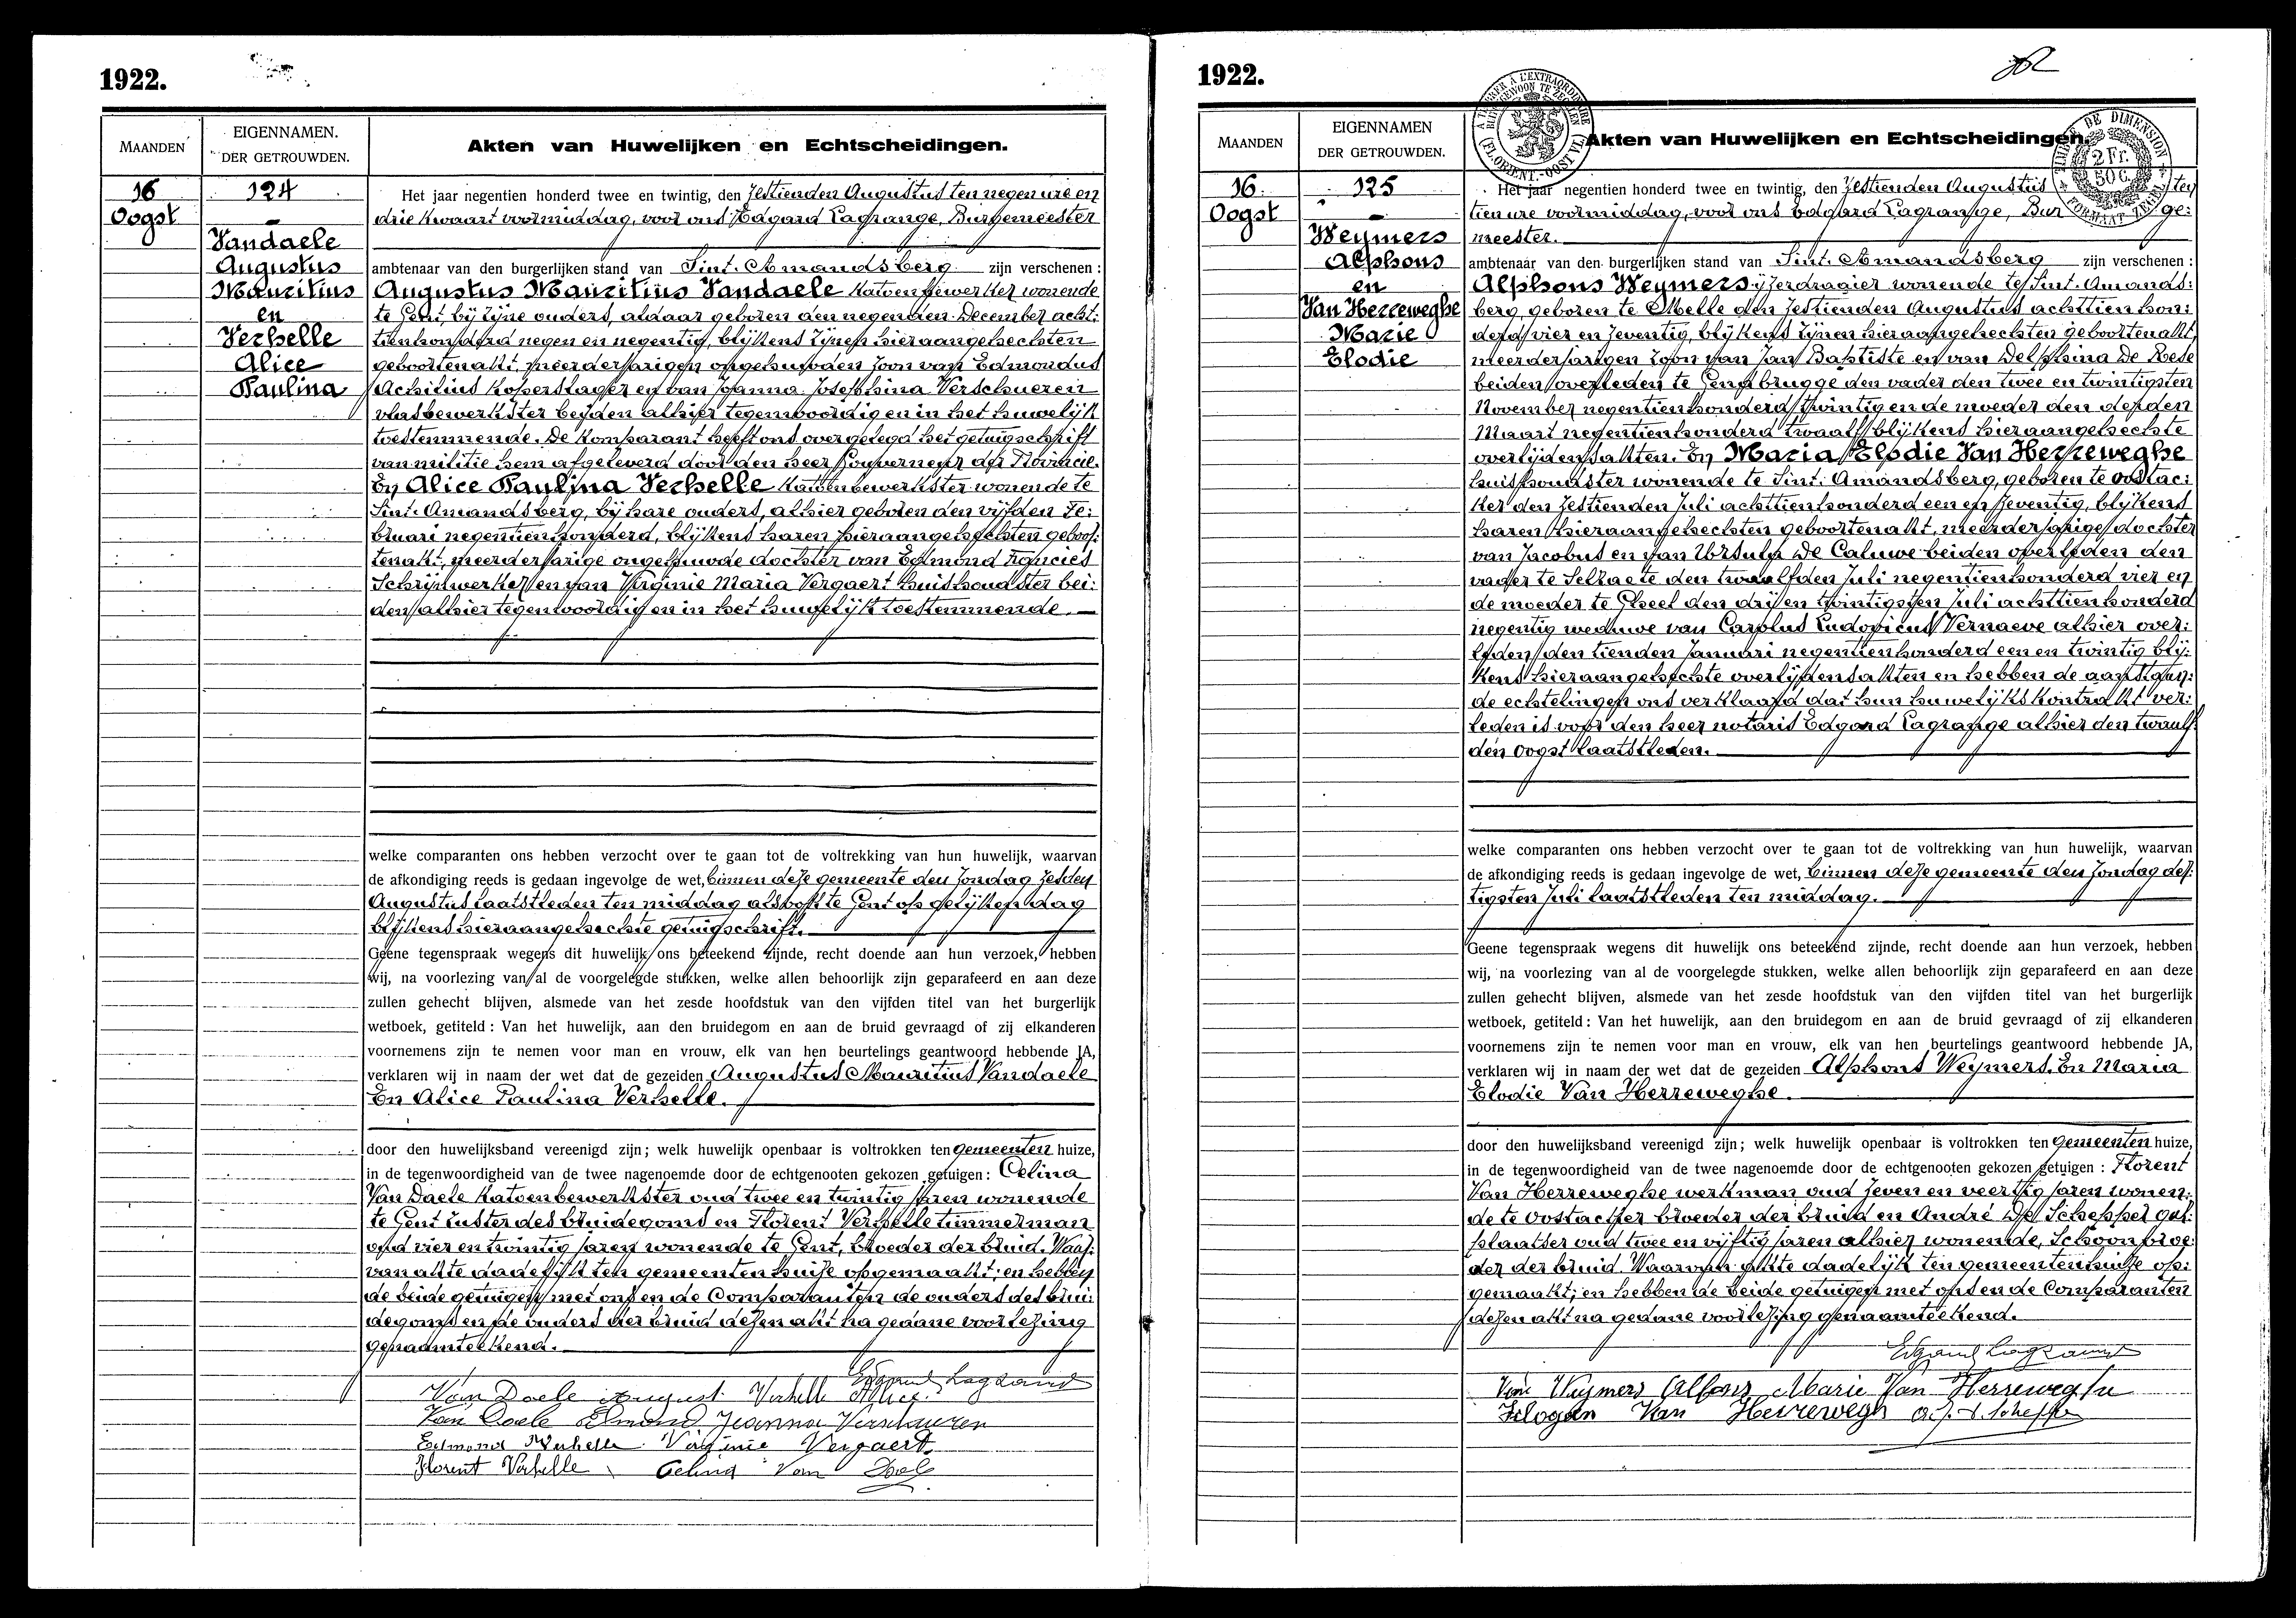 1922.
MAANDEN
EIGENNAMEN.
DER GETROUWDEN.
Akten van Huwelijken en Echtscheidingen.
16
Oogst
124
Vandaele
Augustus
Mauritius
en
Verhelle
Alice
Paulina
Het jaar negentien honderd twee en twintig, den zestienden Augustus ten negen ure en
drie kwaart voormiddag, voor ons Edgard Lagrange, Burgemeester
ambtenaar van den burgerlijken stand van Sint-Amandsberg zijn verschenen :
Augustus Mauritius Vandaele katoenbewerker wonende
te Gent, bij zijne ouders, aldaar geboren den negenden December acht:
tienhonderd negen en negentig, blijkens zijnen hieraangehechten
geboortenakt, meerderjarigen ongehuwden zoon van Edmondus
Achilius koperslager en van Joanna Josephina Verschueren
vlasbewerkster beiden alhier tegenwoordig en in het huwelijk
toestemmende. De komparant heeft ons overgelegd het getuigschrift
van militie hem afgeleverd door den heer Gouverneur der Provincie.
En Alice Paulina Verhelle katoenbewerkster wonende te
Sint-Amandsberg, bij hare ouders, alhier geboren den vijfden Fe:
bruari negentienhonderd, blijkens haren hieraangehechten geboor:
tenakt, meerderjarige ongehuwde dochter van Edmond Francies
Schrijnwerker en van Virginie Maria Vergaert huishoudster bei:
den alhier tegenwoordig en in het huwelijk toestemmende.
welke comparanten ons hebben verzocht over te gaan tot de voltrekking van hun huwelijk, waarvan
de afkondiging reeds is gedaan ingevolge de wet, binnen deze gemeente den zondag zesden
Augustus laatstleden ten middag alsook te Gent op gelijken dag
blijkens hieraangehechte getuigschrift.
Geene tegenspraak wegens dit huwelijk ons beteekend zijnde, recht doende aan hun verzoek, hebben
wij, na voorlezing van al de voorgelegde stukken, welke allen behoorlijk zijn geparafeerd en aan deze
zullen gehecht blijven, alsmede van het zesde hoofdstuk van den vijfden titel van het burgerlijk
wetboek, getiteld : Van het huwelijk, aan den bruidegom en aan de bruid gevraagd of zij elkanderen
voornemens zijn te nemen voor man en vrouw, elk van hen beurtelings geantwoord hebbende JA,
verklaren wij in naam der wet dat de gezeiden Augustus Mauritius Vandaele
En Alice Paulina Verhelle.
door den huwelijksband vereenigd zijn ; welk huwelijk openbaar is voltrokken ten gemeenten huize,
in de tegenwoordigheid van de twee nagenoemde door de echtgenooten gekozen getuigen : Celina
Van Daele katoenbewerkster oud twee en twintig jaren wonende
te Gent zuster des bruidegoms en Florent Verhelle timmerman
oud vier en twintig jaren wonende te Gent, broeder der bruid. Waar:
van akte dadelijk ten gemeentenhuize opgemaakt; en hebben
de beide getuigen met ons en de Comparanten de ouders des brui:
degoms en de ouders der bruid dezen akt na gedane voorlezing
genaamteekend.
Edgard Lagrange
Van Daele August Verhelle Alice
Van Daele Edmond Jeanna Verschueren
Edmond Verhelle Virginie Vergaert
Florent Verhelle Celina Van Daele
1922.
MAANDEN
EIGENNAMEN
DER GETROUWDEN.
Akten van Huwelijken en Echtscheidingen.
2 Fr.
50 C.
16
Oogst
125
Weymers
Alphons
en
Van Herreweghe
Marie
Elodie
Het jaar negentien honderd twee en twintig, den zestienden Augustus ten
tien ure voormiddag, voor ons Edgard Lagrange, Bur ge:
meester.
ambtenaar van den burgerlijken stand van Sint-Amandsberg zijn verschenen :
Alphons Weymers ijzerdraaier wonende te Sint-Amands:
berg, geboren te Melle den zestienden Augustus achttien hon:
derd vier en zeventig, blijkens zijnen hieraangehechten geboortenakt,
meerderjarigen zoon van Jan Baptiste en van Delphina De Roese
beiden overleden te Gentbrugge den vader den twee en twintigsten
November negentienhonderd twintig en de moeder den derden
Maart negentienhonderd twaalf blijkens hieraangehechte
overlijdensakten. En Maria Elodie Van Herreweghe
huishoudster wonende te Sint-Amandsberg, geboren te Oostac:
ker den zestienden Juli achttienhonderd een en zeventig, blijkens
haren hieraangehechten geboortenakt, meerderjarige dochter
van Jacobus en van Ursula De Caluwe beiden overleden den
vader te Selzaete den twaalfden Juli negentienhonderd vier en
de moeder te Gheel den drij en twintigsten Juli achttienhonderd
negentig weduwe van Carolus Ludovicus Vernaeve alhier over:
leden den tienden Januari negentienhonderd een en twintig blij:
kens hieraangehechte overlijdensakten en hebben de aanstaan:
de echtelingen ons verklaard dat hun huwelijkskontrakt ver:
leden is voor den heer notaris Edgard Lagrange alhier den twaalf:
den oogst laatstleden.
welke comparanten ons hebben verzocht over te gaan tot de voltrekking van hun huwelijk, waarvan
de afkondiging reeds is gedaan ingevolge de wet, binnen deze gemeente den zondag der:
tigsten Juli laatstleden ten middag.
Geene tegenspraak wegens dit huwelijk ons beteekend zijnde, recht doende aan hun verzoek, hebben
wij, na voorlezing van al de voorgelegde stukken, welke allen behoorlijk zijn geparafeerd en aan deze
zullen gehecht blijven, alsmede van het zesde hoofdstuk van den vijfden titel van het burgerlijk
wetboek, getiteld : Van het huwelijk, aan den bruidegom en aan de bruid gevraagd of zij elkanderen
voornemens zijn te nemen voor man en vrouw, elk van hen beurtelings geantwoord hebbende JA,
verklaren wij in naam der wet dat de gezeiden Alphons Weymers. En Maria
Elodie Van Herreweghe.
door den huwelijksband vereenigd zijn ; welk huwelijk openbaar is voltrokken ten gemeenten huize,
in de tegenwoordigheid van de twee nagenoemde door de echtgenooten gekozen getuigen : Florent
Van Herreweghe werkman oud zeven en veertig jaren wonen:
de te Oostacker broeder der bruid en André De Schepper
plaatser oud twee en vijftig jaren alhier wonende, Schoonbroe:
der der bruid. Waarvan akte dadelijk ten gemeentenhuize op:
gemaakt; en hebben de beide getuigen met ons en de Comparanten
dezen akt na gedane voorlezing genaamteekend.
Edgard Lagrange
Weymers Alfons Marie Van Herreweghe
Van Herreweghe